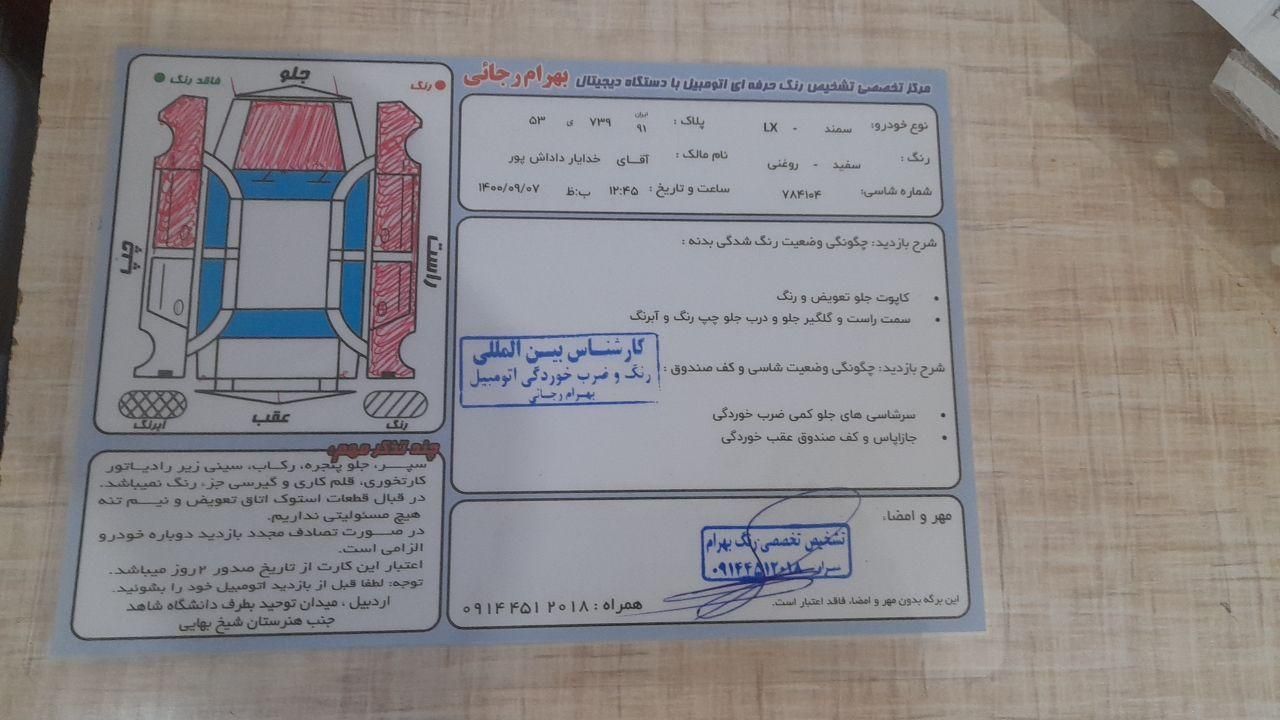 مرکز تخصصی تشخیص رنگ حرفه ای اتومبیل با دستگاه دیجیتال بهرام رجائی
نوع خودرو: سمند - LX پلاک: ایران ۹۱ ۷۳۹ ی ۵۳
رنگ: سفید - روغنی نام مالک: آقـای خدایار داداش پور
شماره شاسی: ۷۸۴۱۰۴ ساعت و تاریخ: ۱۲:۴۵ ب:ظ ۱۴۰۰/۰۹/۰۷
شرح بازدید: چگونگی وضعیت رنگ شدگی بدنه:
• کاپوت جلو تعویض و رنگ
• سمت راست و گلگیر جلو و درب جلو چپ رنگ و آبرنگ
شرح بازدید: چگونگی وضعیت شاسی و کف صندوق:
• سرشاسی های جلو کمی ضرب خوردگی
• جازاپاس و کف صندوق عقب خوردگی
کارشنـاس بیـن المللی
رنگ و ضرب خوردگی اتومبیل
بهـرام رجـائی
مهر و امضاء:
تشخیص تخصصی رنگ بهرام
۰۹۱۴۴۵۱۲۰۱۸
این برگه بدون مهر و امضاء، فاقد اعتبار است.
همراه: ۰۹۱۴ ۴۵۱ ۲۰۱۸
رنگ
فاقد رنگ
جلو
راست
چپ
عقب
رنگ
آبرنگ
چند تذکر مهم:
سپـــر، جلو پنجره، رکـاب، سینی زیر رادیـاتور
کارتخوری، قلم کاری و گیرسی جزء رنگ نمیباشد.
در قبال قطعات استوک اتاق تعویض و نیـــم تنه
هیچ مسئولیتی نداریم.
در صــورت تصادف مجدد بازدید دوباره خودرو
الزامی است.
اعتبار این کارت از تاریخ صدور ۲ روز میباشد.
توجه: لطفا قبل از بازدید اتومبیل خود را بشوئید.
اردبیل، میدان توحید بطرف دانشگاه شاهد
جنب هنرستان شیخ بهایی